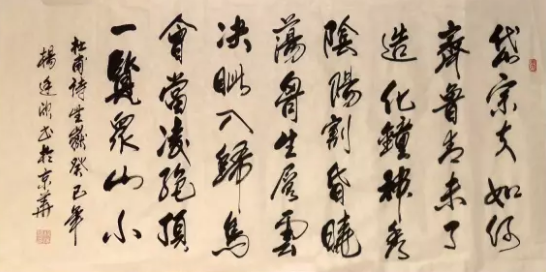 岱宗夫如何
齊魯青未了
造化鐘神秀
陰陽割昏曉
蕩胷生層雲
決眦入歸鳥
會當凌絕頂
一覽衆山小
杜甫詩望嶽癸巳年
楊書於京華